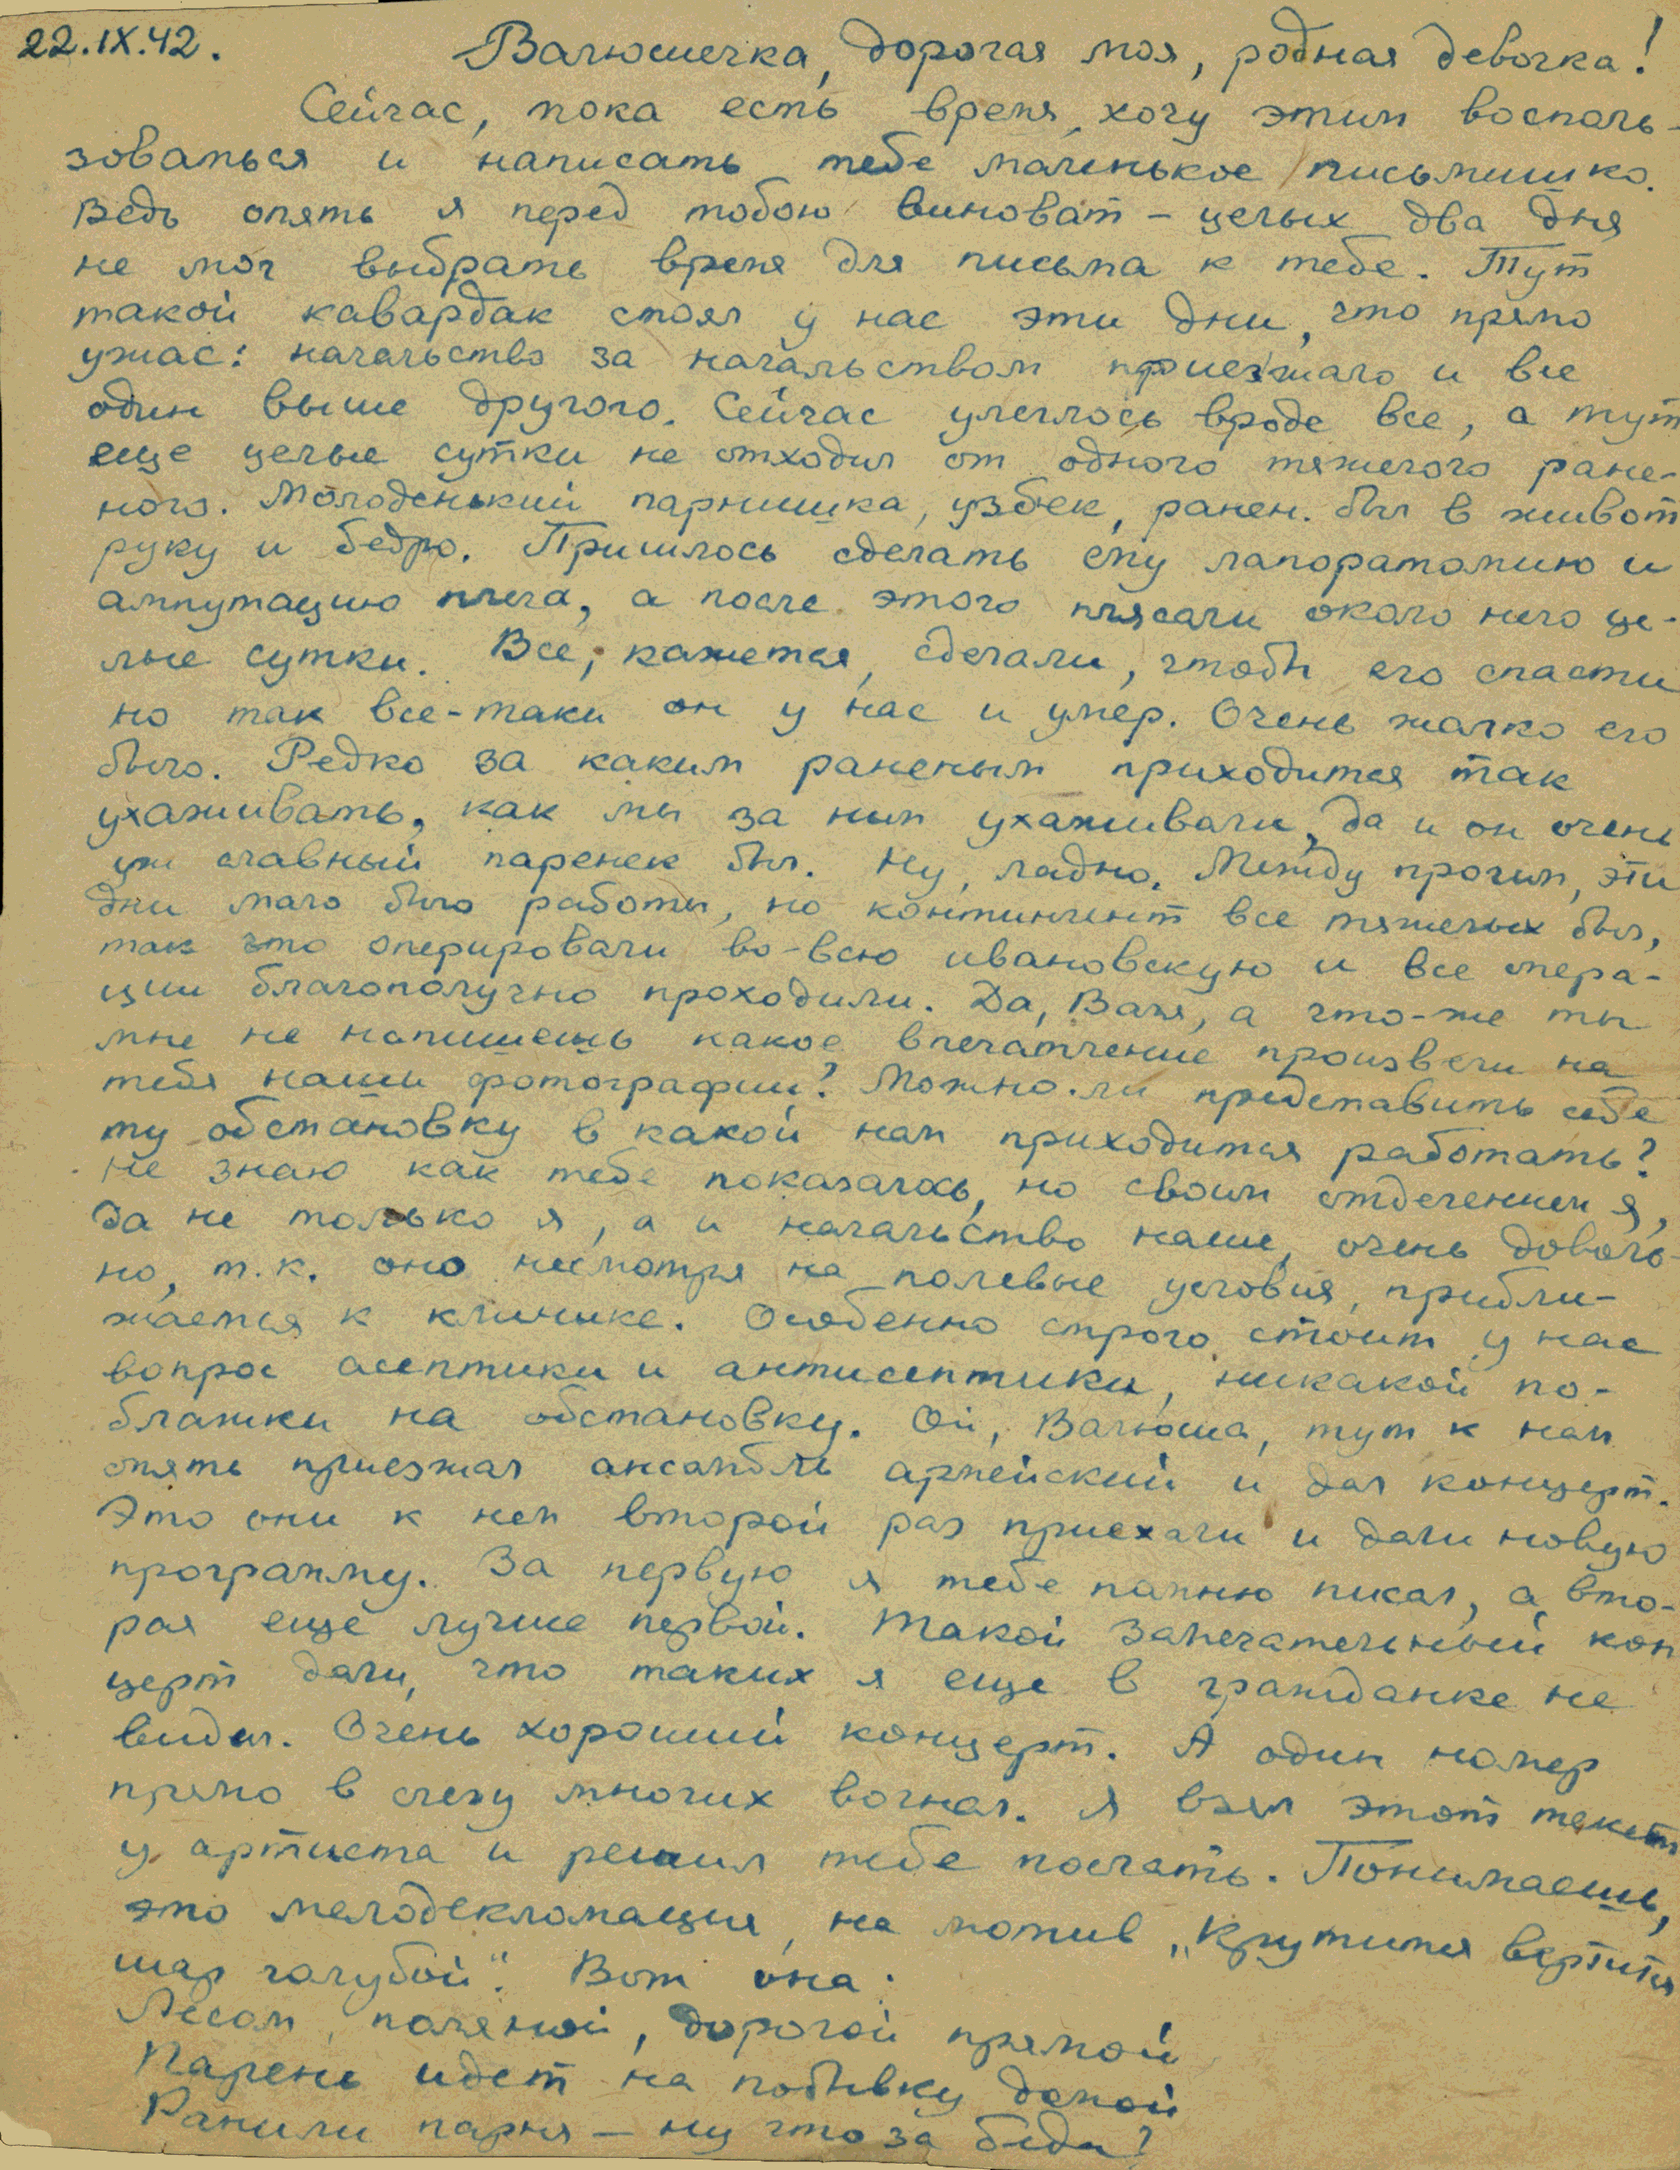 22.IX.42. Валюшечка, дорогая моя, родная девочка!
Сейчас, пока есть время, хочу этим восполь-
зоваться и написать тебе маленькое письмишко.
Ведь опять я перед тобою виноват - целых два дня
не мог выбрать время для письма к тебе. Тут
такой кавардак стоял у нас эти дни, что прямо
ужас: начальство за начальством приезжало и все
один выше другого. Сейчас улеглось вроде все, а тут
еще целые сутки не отходил от одного тяжелого ране-
ного. Молоденький парнишка, узбек, ранен. был в живот
руку и бедро. Пришлось сделать ему лапоратомию и
ампутацию плеча, а после этого плясали около него це-
лые сутки. Все, кажется, сделали, чтобы его спасти
но так все-таки он у нас и умер. Очень жалко его
было. Редко за каким раненым приходится так
ухаживать, как мы за ним ухаживали, да и он очень
уж славный паренек был. Ну, ладно. Между прочим, эти
дни мало было работы, но контингент все тяжелых был,
так что оперировали во-всю ивановскую и все опера-
ции благополучно проходили. Да, Валя, а что-же ты
мне не напишешь какое впечатление произвели на
тебя наши фотографии? Можно-ли представить себе
ту обстановку в какой нам приходится работать?
Не знаю как тебе показалось, но своим отделением я,
да не только я, а и начальство наше, очень доволь-
но, т.к. оно несмотря на полевые условия, прибли-
жается к клинике. Особенно строго стоит у нас
вопрос асептики и антисептики, никакой по-
блажки на обстановку. Ой, Валюша, тут к нам
опять приезжал ансамбль армейский и дал концерт.
Это они к нам второй раз приехали и дали новую
программу. За первую я тебе помню писал, а вто-
рая еще лучше первой. Такой замечательный кон
церт дали, что таких я еще в гражданке не
видел. Очень хороший концерт. А один номер
прямо в слезу многих вогнал. Я взял этот текст
у артиста и решил тебе послать. Понимаешь,
это мелодекломация, на мотив „Крутится вертится
шар голубой". Вот она:
Лесом, поляной, дорогой прямой
Парень идет на побывку домой
Ранили парня — ну что за беда?